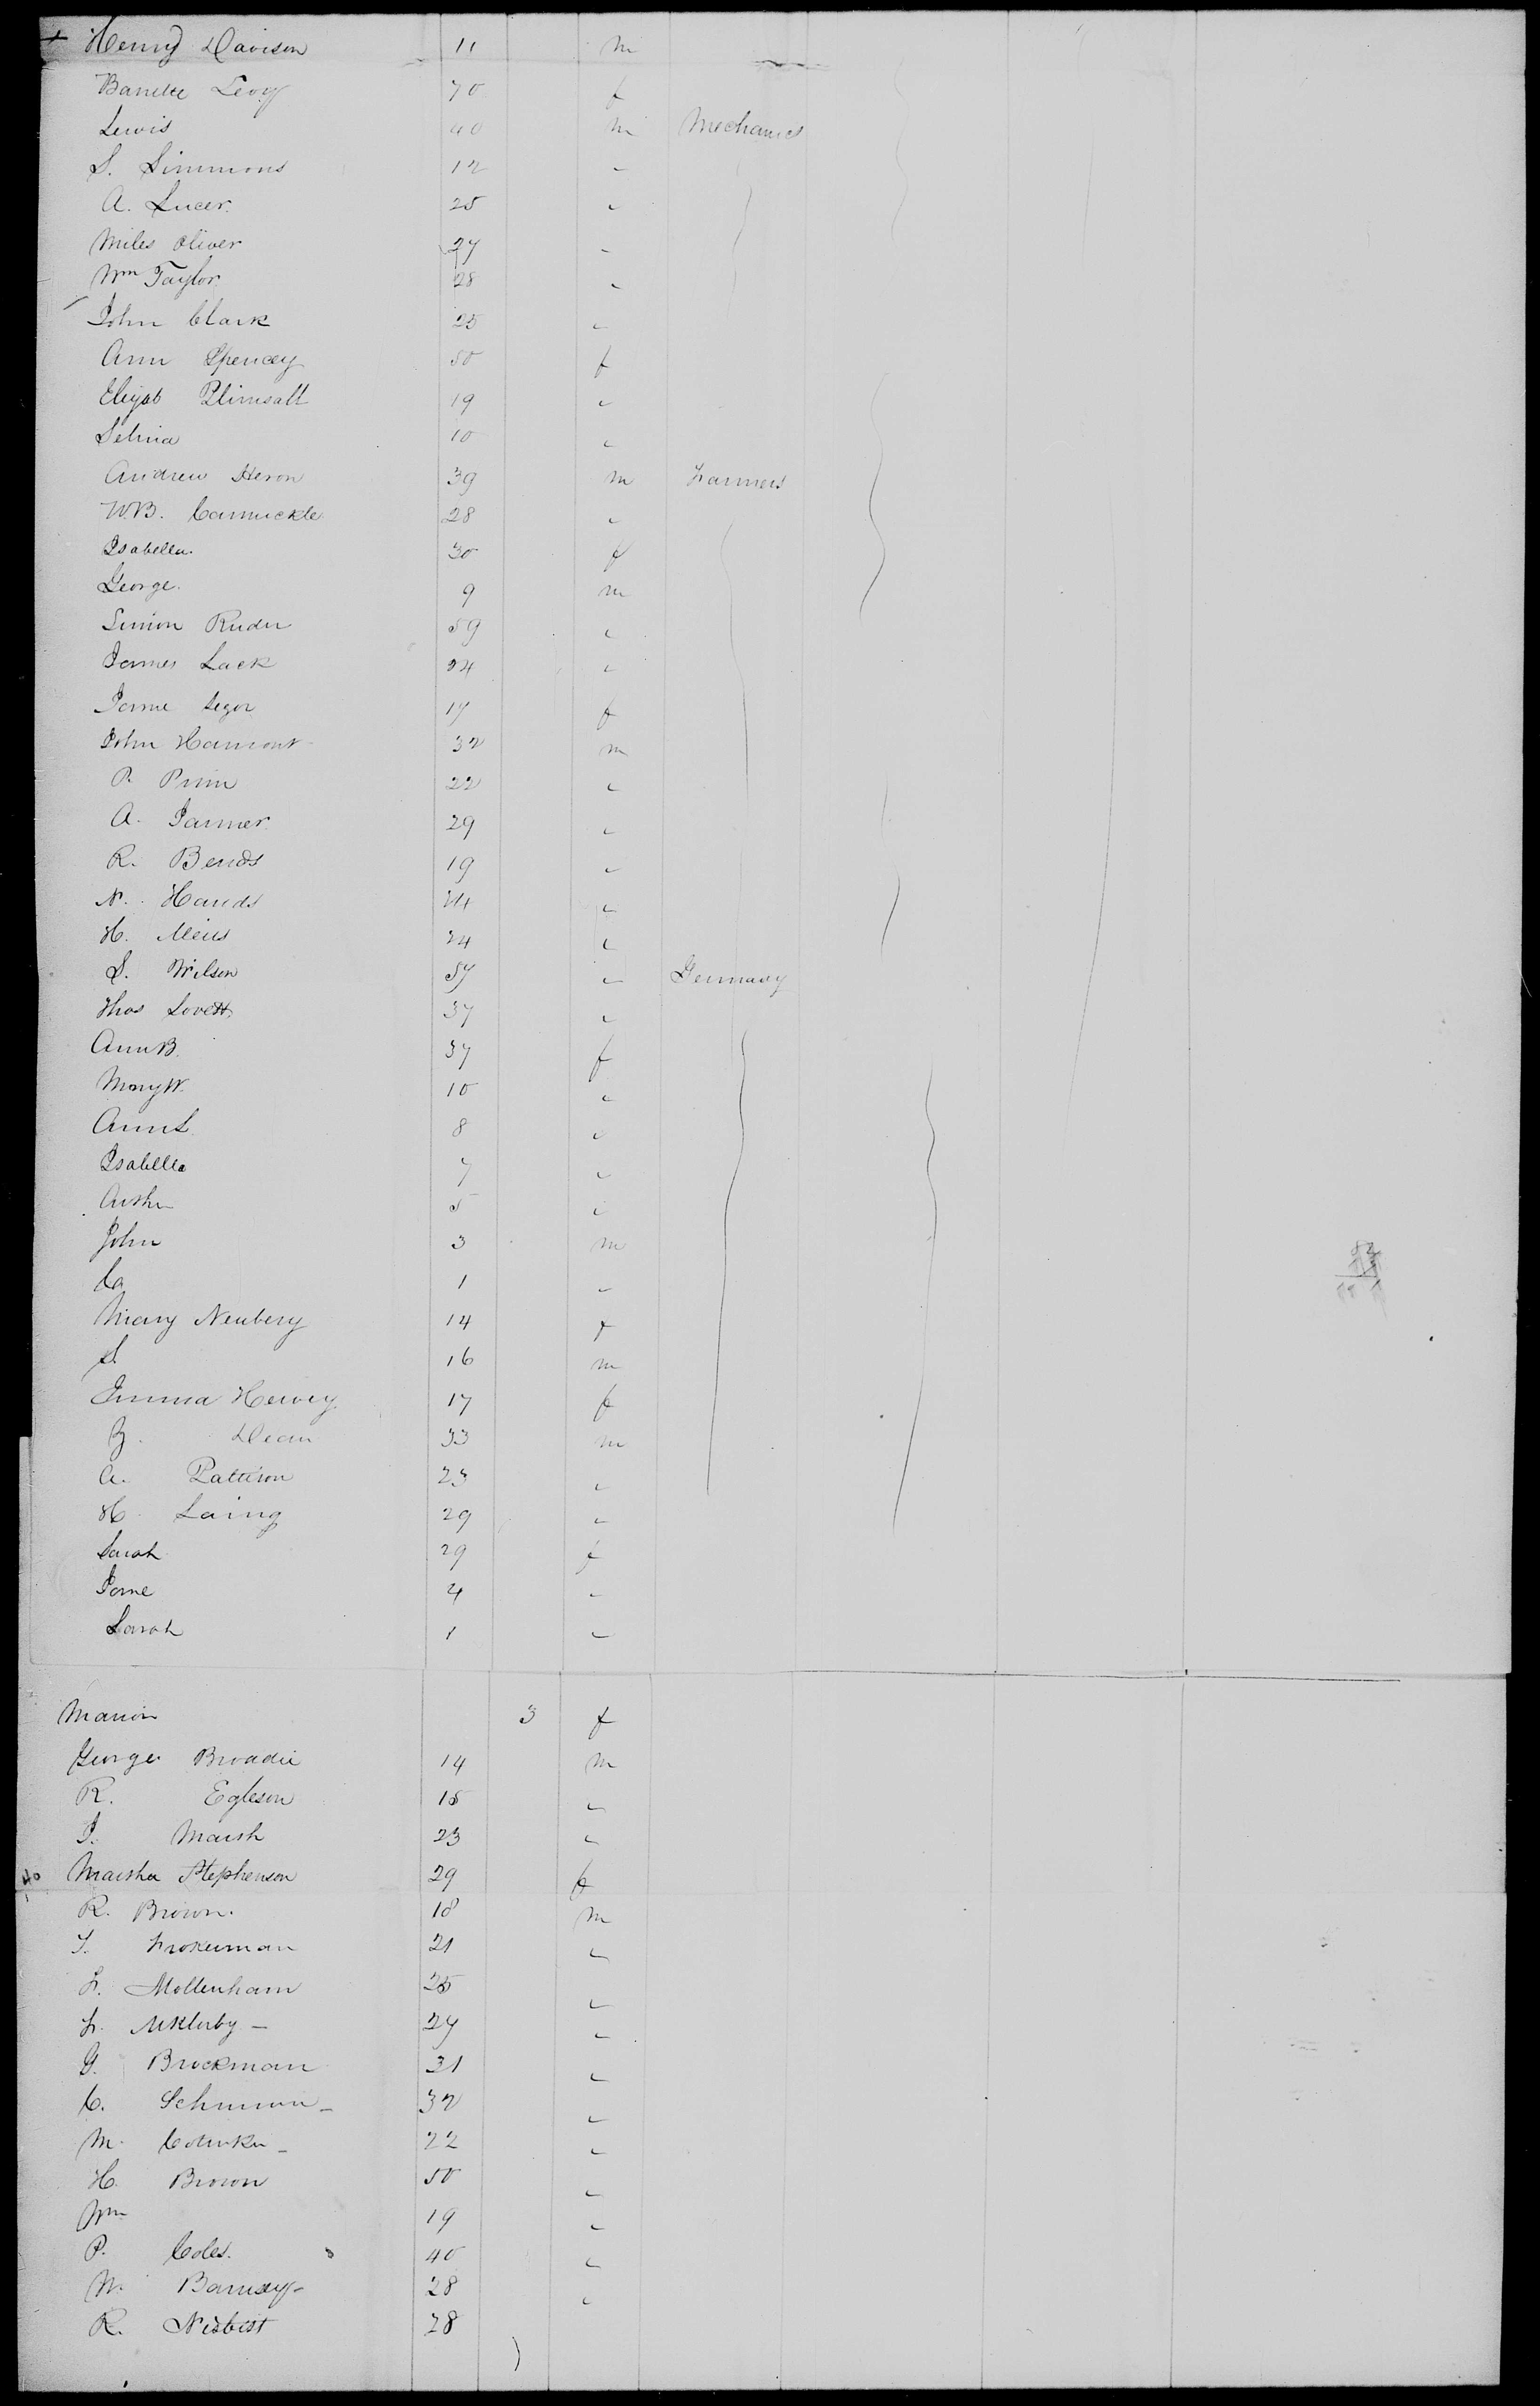 Henry Davison 11 m
Banette Levy 70 f
Lewis 40 m Mechanics
S. Simmons 12 "
A. Lucer. 25 "
Miles Oliver 27 "
Wm Taylor. 28 "
John Clark 25 "
Ann Spencey 50 f
Elizab Plimsall 19 "
Selina 10 "
Andrew Heron 39 m Farmers
W.B. Carmuckle 28 "
Isabella. 30 f
George. 9 m
Simon Ruder 59 "
James Lack 24 "
Jane Segor 17 f
John Hamont 32 m
P. Prim 22 "
A. Farmer. 29 "
R. Bends 19 "
N. Hands 24 "
H. Meus 24 "
S. Wilson 57 " Germany
Thos Lovett 37 "
Ann B. 37 f
Mary W. 10 "
Ann L 8 "
Isabella 7 "
Arthur 5 "
John 3 m
Co 1 "
Mary Newbery 14 f
S. 16 m
Emma Hervey 17 f
Z. Dean 33 m
A. Pattison 23 "
H. Laing 29 "
Sarah 29 f
Jane 4 "
Sarah 1 "
Marion 3 f
George Broadie 14 m
R. Egleson 15 "
J. Marsh 23 "
40 Martha Stephenson 29 f
R. Brown. 18 m
T. Frokerman 21 "
F. Mollenham 25 "
F. 27 "
G. Brockman 31 "
C. 32 "
M. 22 "
H. Brown 50 "
Wm 19 "
P. Coles. 40 "
W. Barnday 28 "
R. Nisbist 28